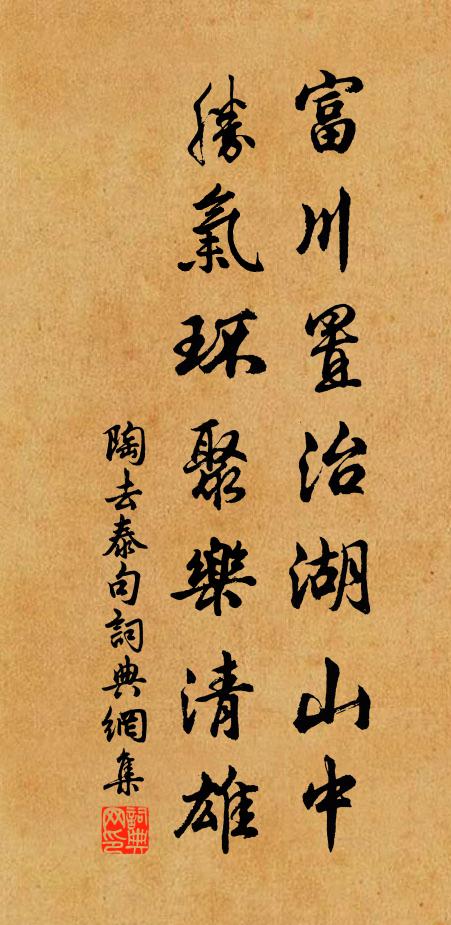 富川置治湖山中
勝氣环聚樂清雄
陶去泰句詞典網集
詞典网印